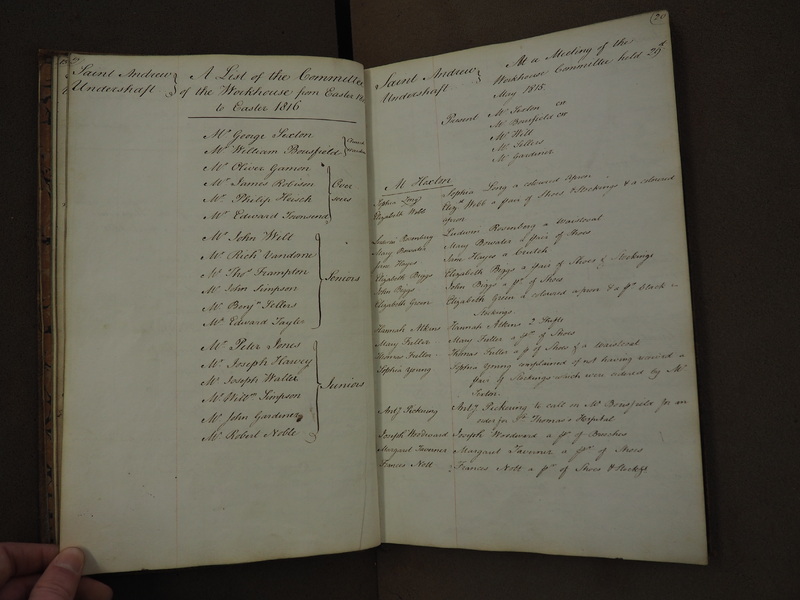 Saint Andrew
Undershaft
A List of the Committee
of the Workhouse from Easter
to Easter 1816
Mr George Sexton
Mr William Bousfield
Church
Wardens
Mr Oliver Gamon
Mr James Robison
Mr Philip Heisch
Mr Edward Townsend
Over
seers
Mr John Witt
Mr Richd Vandome
Mr Thos Frampton
Mr John Simpson
Mr Benjn Sellers
Mr Edward Tayler
Seniors
Mr Peter Jones
Mr Joseph Harvey
Mr Joseph Walter
Mr Willm Simpson
Mr John Gardiner
Mr Robert Noble
Juniors
20
Saint Andrew
Undershaft
At a Meeting of the
Workhouse Committee held 29th
May 1815
Present Mr Sexton CW
Mr Bousfield CW
Mr Witt
Mr Sellers
Mr Gardiner
At Hoxton
Sophia Long Sophia Long a coloured apron
Elizabeth Webb Elizth Webb a pair of Shoes & Stockings & a coloured
apron
Ludwin Romberg Ludwin Romberg a Waistcoat
Mary Bowater Mary Bowater a pair of Shoes
Jane Hayes Jane Hayes a Crutch
Elizabeth Biggs Elizabeth Biggs a pair of Shoes & Stockings
John Biggs John Biggs a pr of Shoes
Elizabeth Green Elizabeth Green a coloured apron & a pr black
Stockings
Hannah Atkins Hannah Atkins 2 Shifts
Mary Fuller Mary Fuller a pr of Shoes
Thomas Fuller Thomas Fuller a pr of Shoes & a Waistcoat
Sophia Young Sophia Young complained of not having received a
pair of Stockings which were ordered by Mr
Sexton
Anty Pickering Anty Pickering to call on Mr Bousfield for an
order for St Thomas's Hospital
Joseph Woodward Joseph Woodward a pr of Breeches
Margaret Tavenner Margaret Tavenner a pr of Shoes
Frances Nott Frances Nott a pr of Shoes & Stockgs